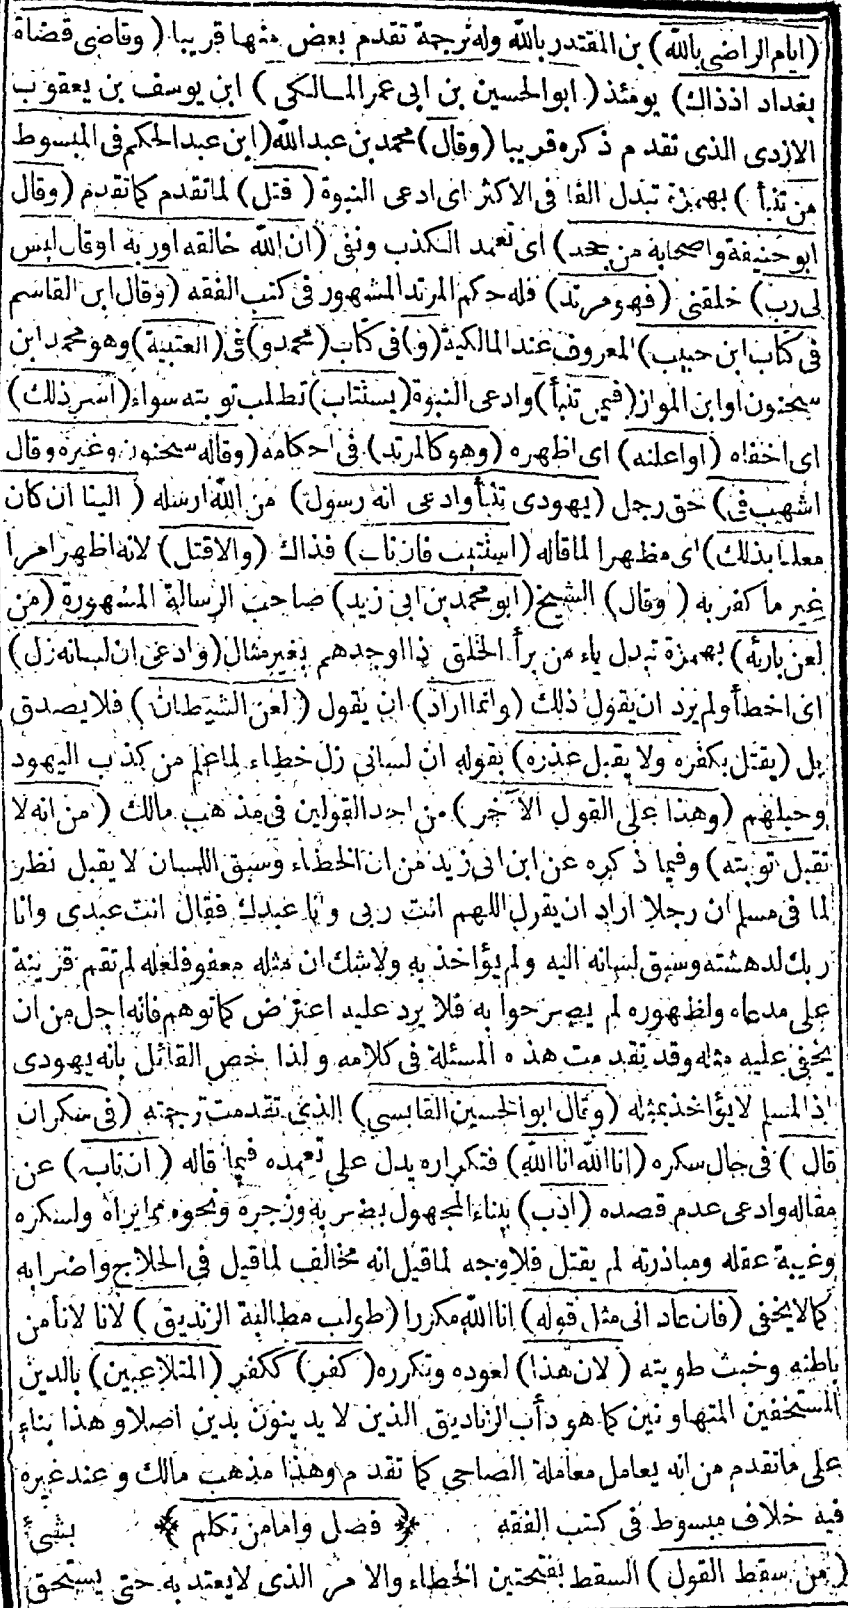 (ايام الراضى بالله) بن المقتدر بالله وله ترجمة تقدم بعض منها قريبا (وقاضى قضاة
بغداد اذذاك) يومئذ (ابوالحسين بن ابى عمر المالكى) ابن يوسف بن يعقوب
الازدى الذى تقدم ذكره قريبا (وقال) محمد بن عبدالله (ابن عبدالحكم فى المبسوط
من تنبأ) بهمزة تبدل الفا فى الاكثر اى ادعى النبوة (قتل) لما تقدم كما تقدم (وقال
ابو حنيفة واصحابه من جحد) اى تعمد الكذب ونفى (ان الله خالقه اوربه اوقال ليس
لى رب) خلقنى (فهو مرتد) فله حكم المرتد المشهور فى كتب الفقه (وقال ابن القاسم
فى كتاب ابن حبيب) المعروف عند المالكية (و) فى كتاب (محمد و) فى (العتبية) وهو محمد ابن
سحنون اوابن المواز (فيمن تنبأ) وادعى النبوة (يستتاب) تطلب توبته سواء (اسر ذلك)
اى اخفاه (او اعلنه) اى اظهره (وهو كالمرتد) فى احكامه (وقاله سحنون وغيره وقال
اشهب فى) حق رجل (يهودى تنبأ وادعى انه رسول) من الله ارسله (الينا ان كان
معلنا بذلك) اى مظهرا لما قاله (استتيب فان تاب) فذاك (والا قتل) لانه اظهر امرا
غير ما كفر به (وقال) الشيخ (ابو محمد بن ابى زيد) صاحب الرسالة المشهورة (من
لعن بارئه) بهمزة تبدل ياء من برأ الخلق اذا اوجدهم بغير مثال (وادعى ان لسانه زل)
اى اخطأ ولم يرد ان يقول ذلك (وانما اراد) ان يقول (لعن الشيطان) فلا يصدق
بل (يقتل بكفره ولا يقبل عذره) بقوله ان لسانى زل خطاء لما علم من كذب اليهود
وحيلهم (وهذا على القول الآخر) من احد القولين فى مذهب مالك (من انه لا
تقبل توبته) وفيما ذكره عن ابن ابى زيد من ان الخطاء وسبق اللسان لا يقبل نظر
لما فى مسلم ان رجلا اراد ان يقول اللهم انت ربى وانا عبدك فقال انت عبدى وانا
ربك لدهشته وسبق لسانه اليه ولم يؤاخذ به ولاشك ان مثله معفو فلعله لم تقم قرينة
على مدعاه ولظهوره لم يصرحوا به فلا يرد عليه اعتراض كما توهم فانه اجل من ان
يخفى عليه مثله وقد تقدمت هذه المسئلة فى كلامه ولذا خص القائل بانه يهودى
اذ المسلم لا يؤاخذ بمثله (وقال ابو الحسين القابسي) الذى تقدمت ترجمته (فى سكران
قال) فى حال سكره (انا الله انا الله) فتكراره يدل على تعمده فيما قاله (ان تاب) عن
مقاله وادعى عدم قصده (ادب) ببناء المجهول بضربه وزجره ونحوه مما يراه ولسكره
وغيبة عقله ومبادرته لم يقتل فلا وجه لما قيل انه مخالف لما قيل فى الحلاج واضرابه
كما لا يخفى (فان عاد الى مثل قوله) انا الله مكررا (طولب مطالبة الزنديق) لانا لا نأمن
باطنه وخبث طويته (لان هذا) لعوده وتكرره (كفر) ككفر (المتلاعبين) بالدين
المستخفين المتهاونين كما هو دأب الزناديق الذين لا يدينون بدين اصلا وهذا بناء
على ما تقدم من انه يعامل معاملة الصاحى كما تقدم وهذا مذهب مالك وعند غيره
فيه خلاف مبسوط فى كتب الفقه ﴿ فصل واما من تكلم ﴾ بشئ
(من سقط القول) السقط بفتحتين الخطاء والامر الذى لا يعتد به حتى يستحق